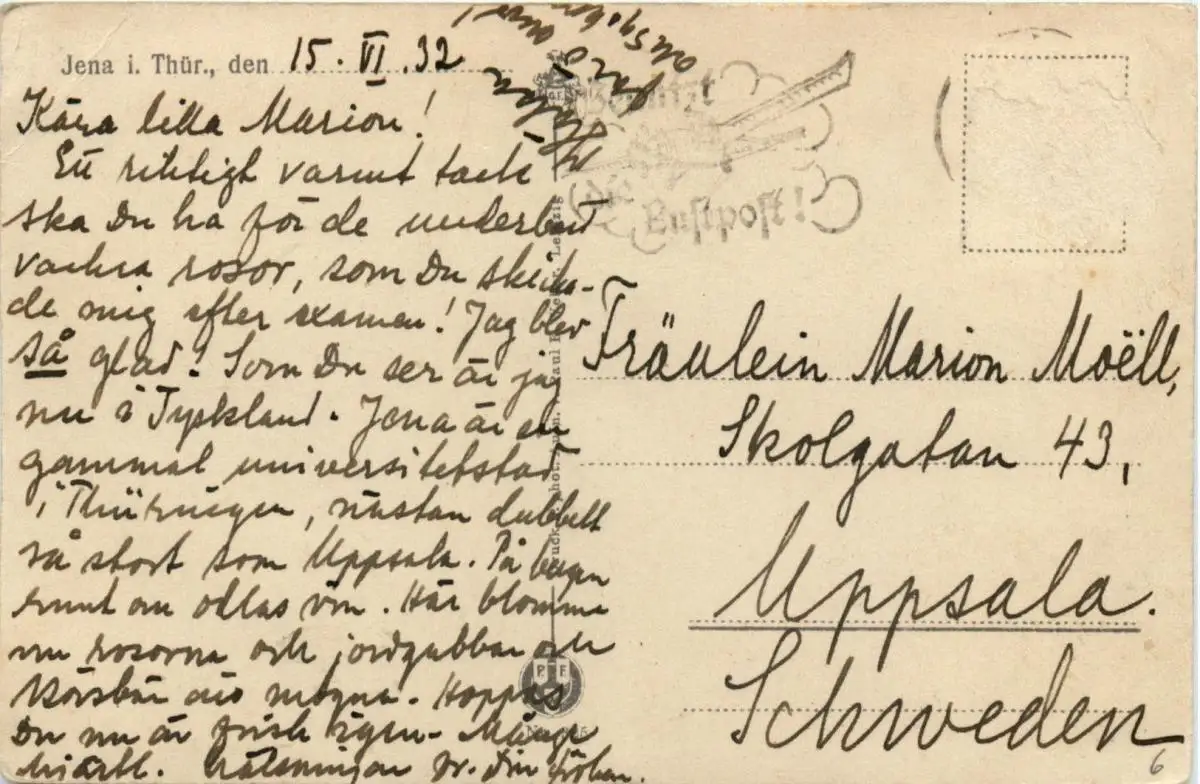 Jena i. Thür., den 15. VI. 32
Kära lilla Marion!
Ett riktigt varmt tack
ska Du ha för de underbart
vackra rosor, som Du skicka-
de mig efter examen! Jag blev
så glad! Som Du ser är jag
nu i Tyskland. Jena är en
gammal universitetsstad
i Thüringen, nästan dubbelt
så stort som Uppsala. På bergen
runt om odlas vin. Här blomma
nu rosorna och jordgubbar och
körsbär äro mogna. Hoppas
Du nu är frisk igen. Många
hjärtl. hälsningar fr. Din
Hälsa
far o
mor
Benutzt
die
Luftpost!
Fräulein Marion Moëll,
Skolgatan 43,
Uppsala.
Schweden
P F
6